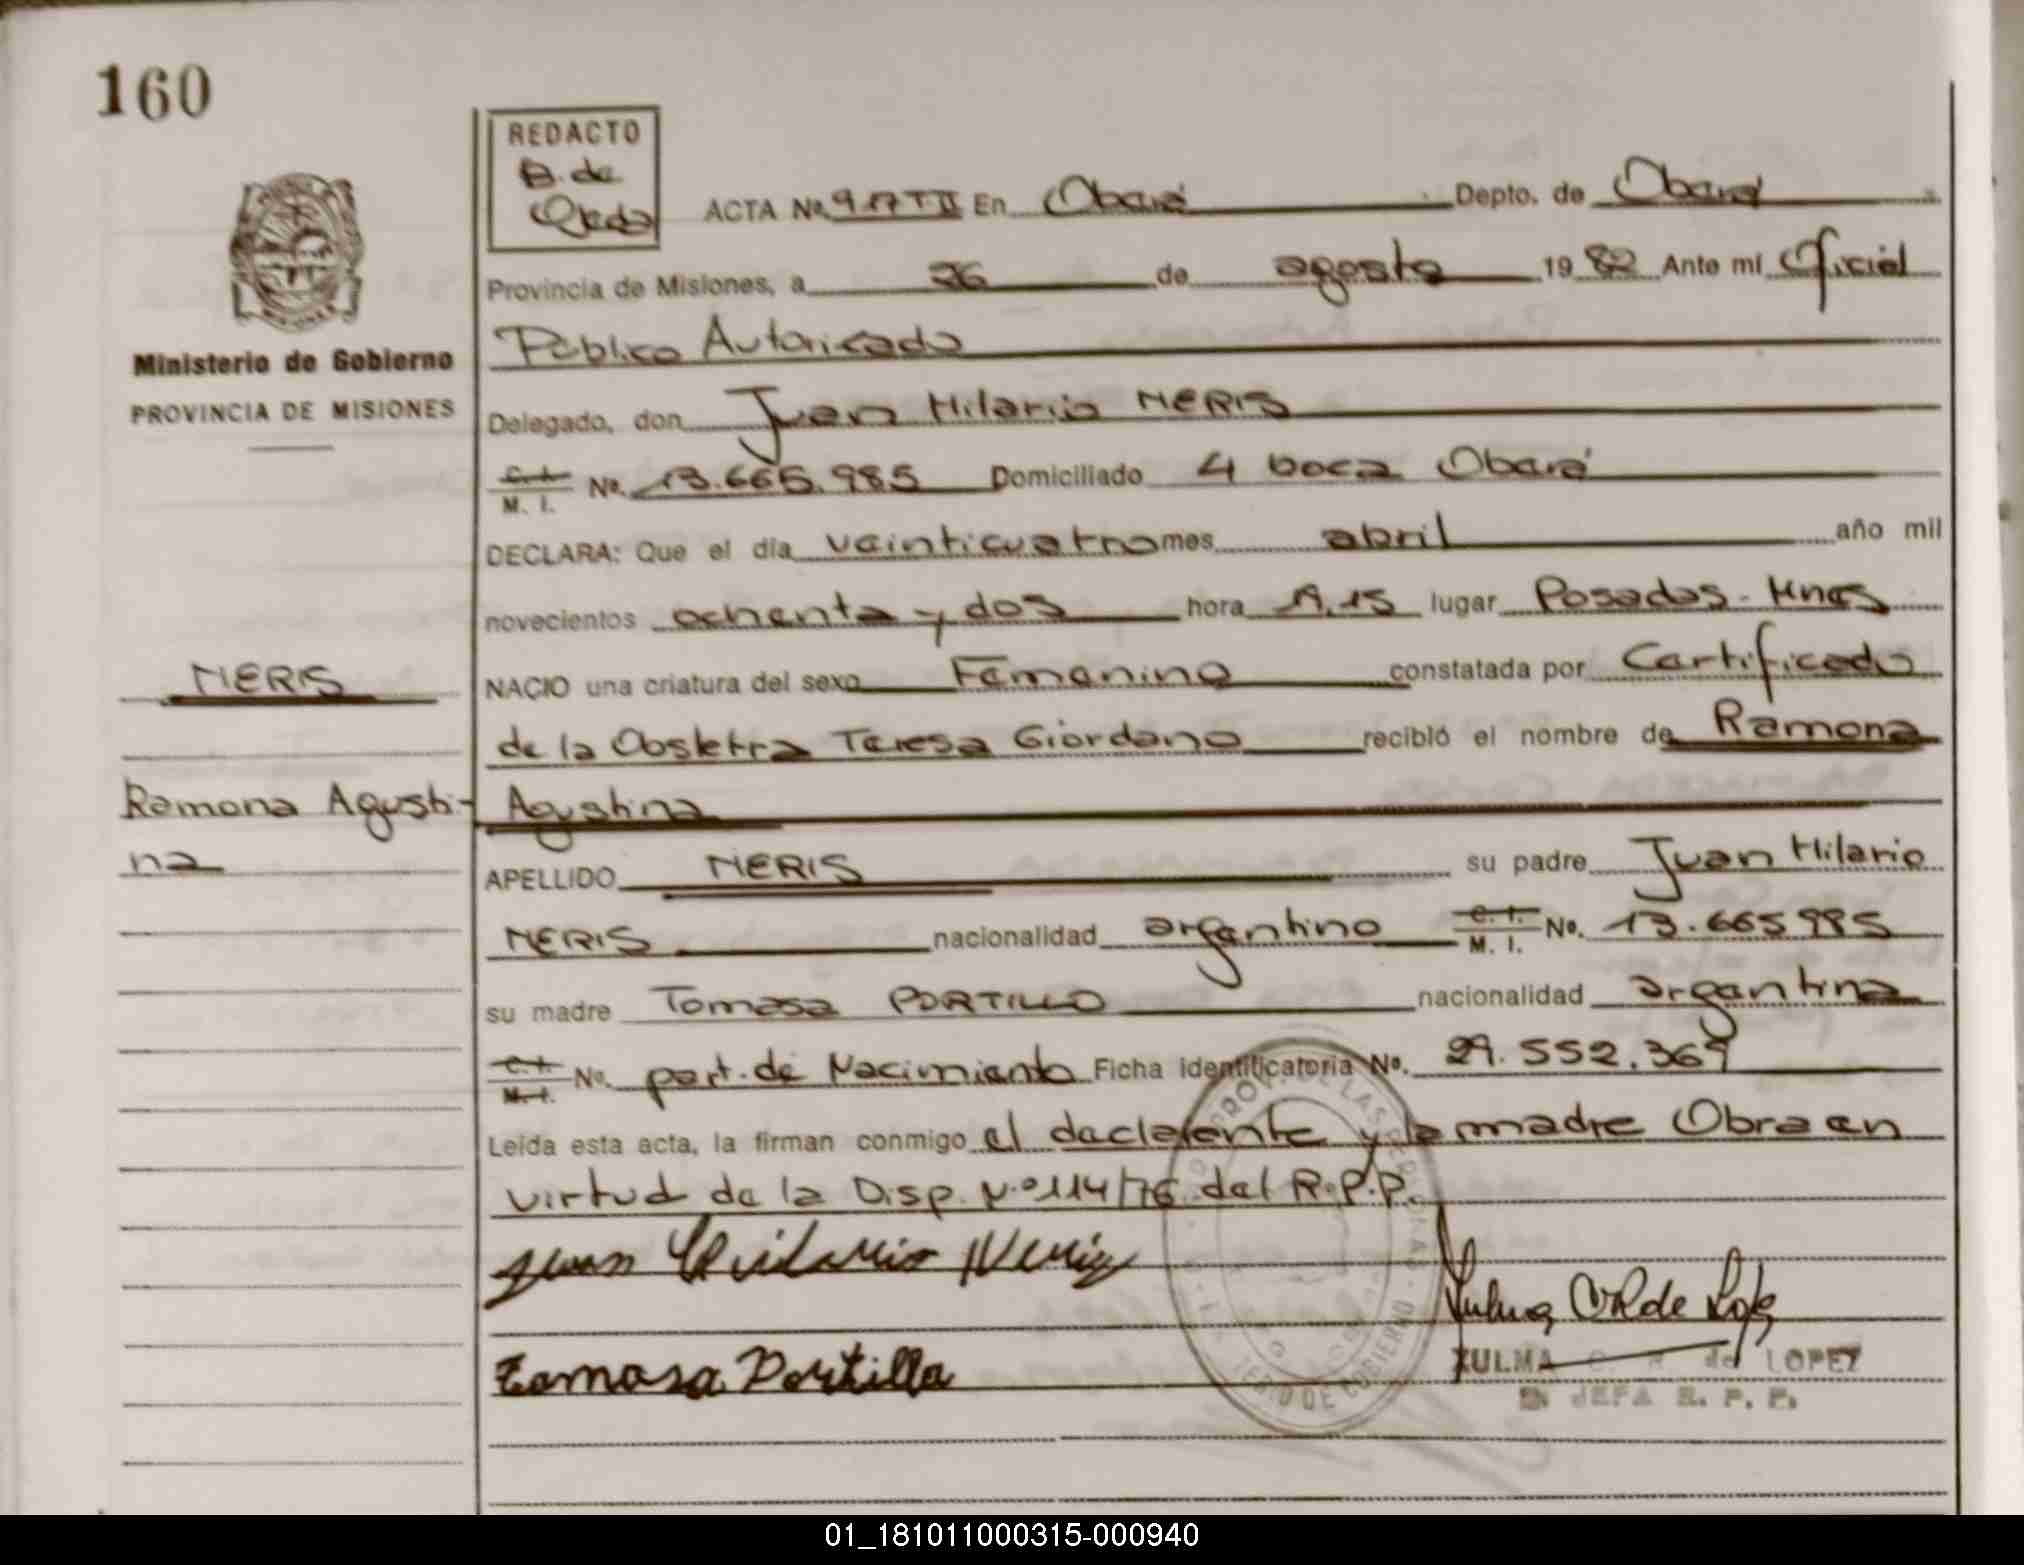 160
REDACTO
B. de
Ojeda
ACTA No. 917 T II En Oberá Depto. de Oberá
Provincia de Misiones, a 26 de agosto 1982 Ante mí Oficial
Público Autorizado
Ministerio de Gobierno
PROVINCIA DE MISIONES
Delegado, don Juan Hilario NERIS
C. I. M. I. No. 13.665.985 Domiciliado 4 boca Oberá
DECLARA: Que el día veinticuatro mes abril año mil
novecientos ochenta y dos hora lugar Posadas - Mnes
NERIS
NACIO una criatura del sexo Femenino constatada por Certificado
de la Obstetra Teresa Giordano recibió el nombre de Ramona
Ramona Agusti-
na
Agustina
APELLIDO NERIS su padre Juan Hilario
NERIS nacionalidad argentino C. I. M. I. No. 13.665985
su madre Tomasa PORTILLO nacionalidad argentina
C. I. M. I. No. part. de Nacimiento Ficha identificatoria No. 29.552.369
Leída esta acta, la firman conmigo el declarente y la madre Obra en
virtud de la Disp. N.º 114/76 del R.P.P.
Juan Hilario Neris
Tomasa Portillo
ZULMA de LOPEZ
JEFA R. P. P.
PROV. DE LAS PERSONAS
DE GOBIERNO
01_181011000315-000940